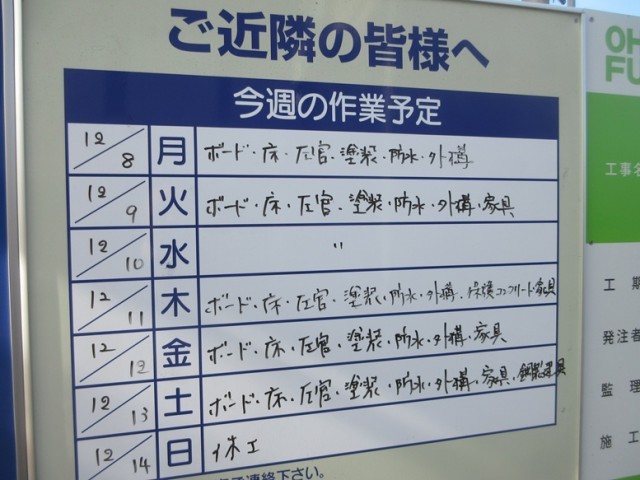 ご近隣の皆様へ
今週の作業予定
12/8 月 ボード・床・左官・塗装・防水・外構
12/9 火 ボード・床・左官・塗装・防水・外構・家具
12/10 水 〃
12/11 木 ボード・床・左官・塗装・防水・外構・保護コンクリート・家具
12/12 金 ボード・床・左官・塗装・防水・外構・家具
12/13 土 ボード・床・左官・塗装・防水・外構・家具・鋼製建具
12/14 日 休工
ご連絡下さい。
OH
FU
工事名
工期
発注者
監理
施工